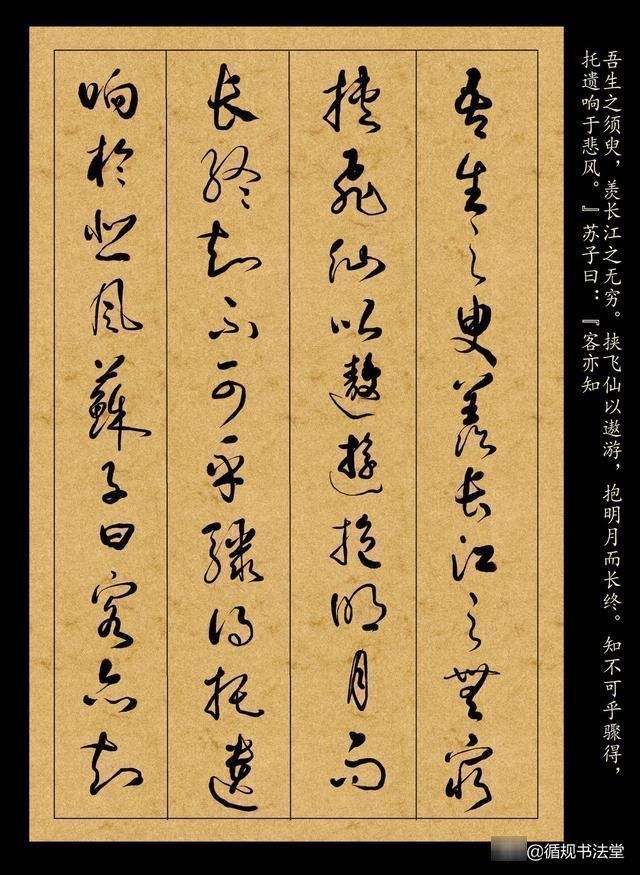 吾生之须臾，羡长江之无穷。挟飞仙以遨游，抱明月而长终。知不可乎骤得，
托遗响于悲风。』苏子曰：『客亦知
吾生之臾羡長江之無窮
挟飛仙以遨遊抱明月而
長終知不可乎驟得托遺
响於悲風蘇子曰客亦知
@循规书法堂